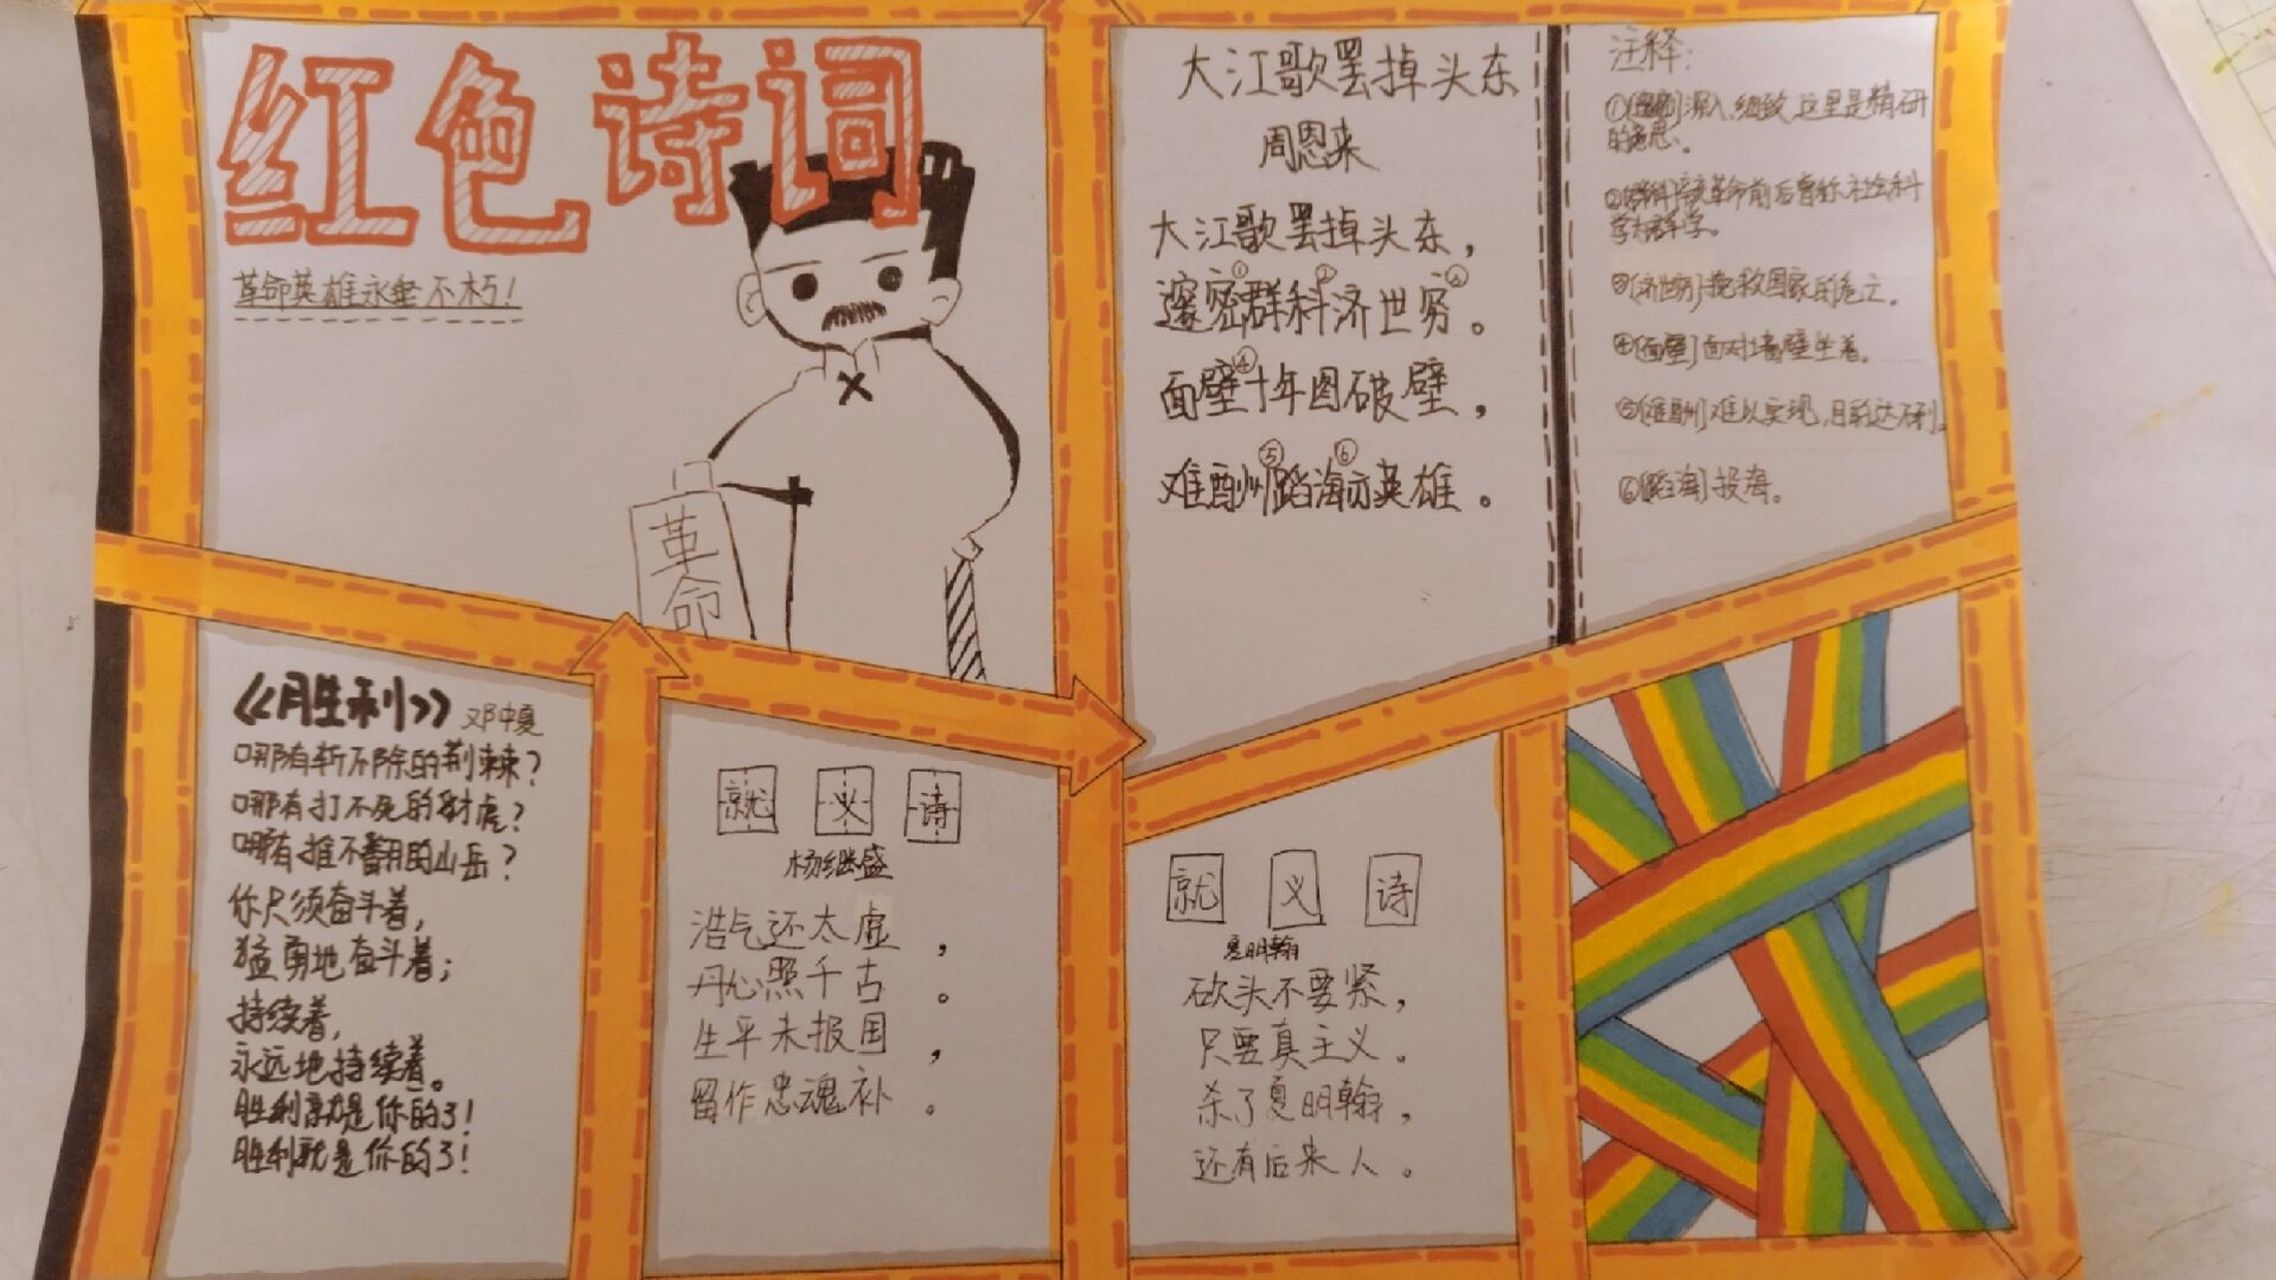 红色诗词
革命英雄永垂不朽!
革
命
大江歌罢掉头东
周恩来
大江歌罢掉头东，
邃密①群科②济世穷③。
面壁④十年图破壁，
难酬⑤蹈海⑥亦英雄。
注释:
①[邃密]深入、细致,这里是精研
的意思。
②[群科]辛亥革命前后曾称社会科
学为群学。
③[济世穷]挽救国家的危亡。
④[面壁]面对墙壁坐着。
⑤[难酬]难以实现,目的达不到。
⑥[蹈海]投海。
《胜利》 邓中夏
哪有斩不除的荆棘?
哪有打不死的豺虎?
哪有推不翻的山岳?
你只须奋斗着,
猛勇地奋斗着;
持续着,
永远地持续着。
胜利就是你的了!
胜利就是你的了!
就义诗
杨继盛
浩气还太虚，
丹心照千古。
生平未报国，
留作忠魂补。
就义诗
夏明翰
砍头不要紧，
只要真主义。
杀了夏明翰，
还有后来人。